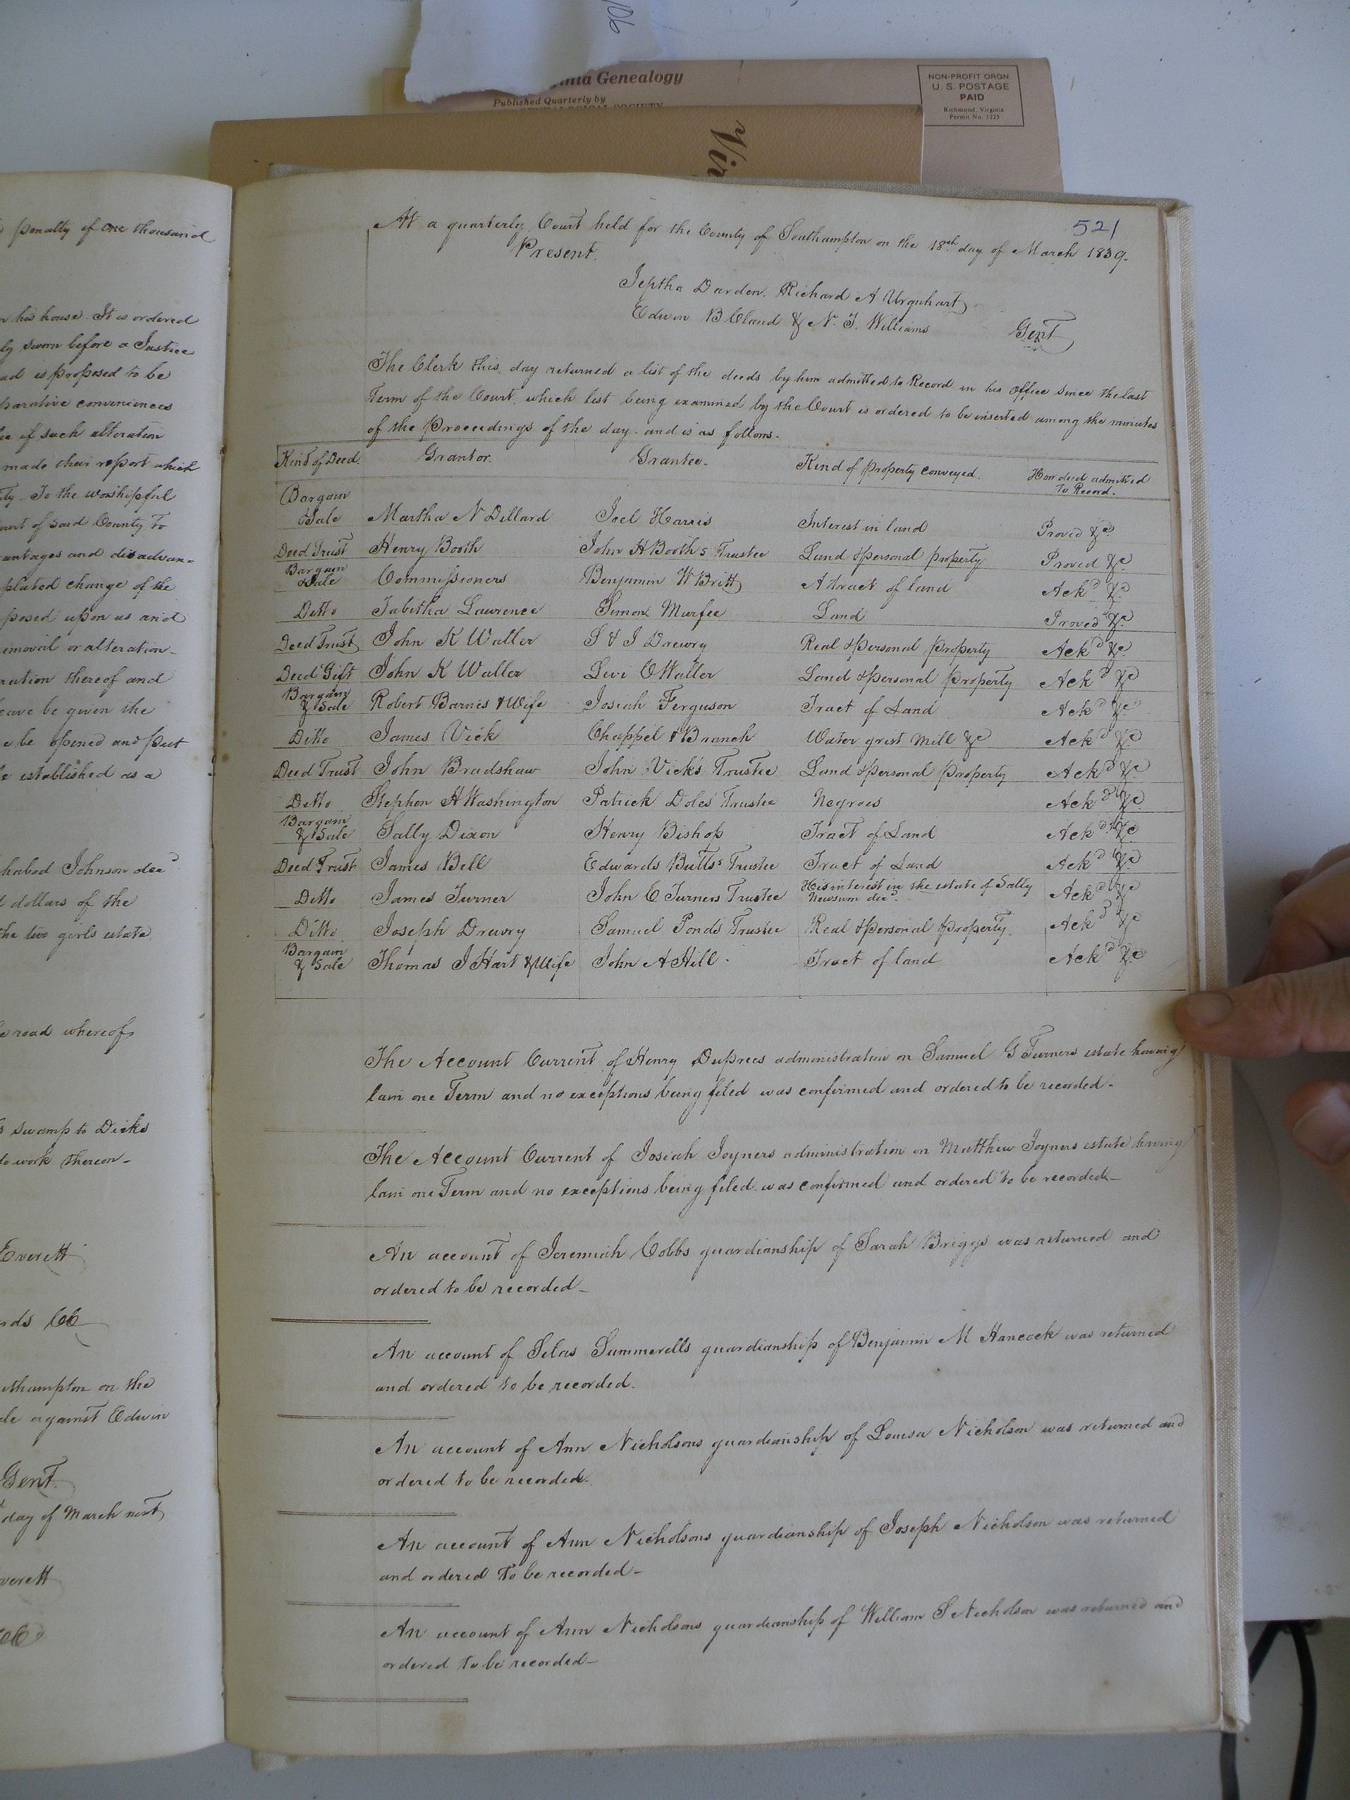 106
Virginia Genealogy
Published Quarterly by
NON-PROFIT ORGN
U. S. POSTAGE
PAID
Richmond, Virginia
Permit No. 1225
Vir
penalty of one thousand
his house. It is ordered
sworn before a Justice
is proposed to be
conveniences
of such alteration
made their report which
To the worshipful
of said County To
and disadvan=
change of the
upon us and
or alteration
thereof and
be given the
be opened and put
established as a
Johnson decd
dollars of the
the two girls estate
road whereof
swamp to Dicks
to work thereon
Everett
on the
against Edwin
Gent.
day of March next
521
At a quarterly Court held for the County of Southampton on the 18th day of March 1839.
Present.
Jeptha Darden. Richard A Urquhart
Edwin B Claud & N. T. Williams Gent
The Clerk this day returned a list of the deeds by him admitted to Record in his office since the last
Term of the Court, which list being examined by the Court is ordered to be inserted among the minutes
of the Proceedings of the day. and is as follows.
Kind of Deed. Grantor. Grantee. Kind of property conveyed. How deed admitted to Record.
Bargain Sale Martha N Dillard Joel Harris Interest in land Proved &c
Deed Trust Henry Booth John H Booths Trustee Land & personal property Proved &c
Bargain Sale Commissioners Benjamin W Britt A tract of land Ackd &c
Ditto Tabitha Lawrence Simon Murfee Land Proved &c
Deed Trust John K Waller S & J Drewry Real & personal property Ackd &c
Deed Gift John K Waller Levi O Waller Land & personal property Ackd &c
Bargain & Sale Robert Barnes & Wife Josiah Ferguson Tract of Land Ackd &c
Ditto James Vick Chappel & Branch Water grist Mill &c Ackd &c
Deed Trust John Bradshaw John Vick's Trustee Land & personal property Ackd &c
Ditto Stephen H Washington Patrick Doles Trustee Negroes Ackd &c
Bargain & Sale Sally Dixon Henry Bishop Tract of Land Ackd &c
Deed Trust James Bell Edwards Butts Trustee Tract of Land Ackd &c
Ditto James Turner John C Turners Trustee His interest in the estate of Sally Newsum decd. Ackd &c
Ditto Joseph Drewry Samuel Ponds Trustee Real & personal property. Ackd &c
Bargain & Sale Thomas J Hart & Wife John A Hill. Tract of land Ackd &c
The Account Current of Henry Duprees administration on Samuel G Turners estate having
lain one Term and no exceptions being filed was confirmed and ordered to be recorded.
The Account Current of Josiah Joyners administration on Matthew Joyners estate having
lain one Term and no exceptions being filed was confirmed and ordered to be recorded
An account of Jeremiah Cobbs guardianship of Sarah Briggs was returned and
ordered to be recorded
An account of Silas Summerells guardianship of Benjamin M Hancock was returned
and ordered to be recorded.
An account of Ann Nicholsons guardianship of Louisa Nicholson was returned and
ordered to be recorded.
An account of Ann Nicholsons guardianship of Joseph Nicholson was returned
and ordered to be recorded
An account of Ann Nicholsons guardianship of William S Nicholson was returned and
ordered to be recorded